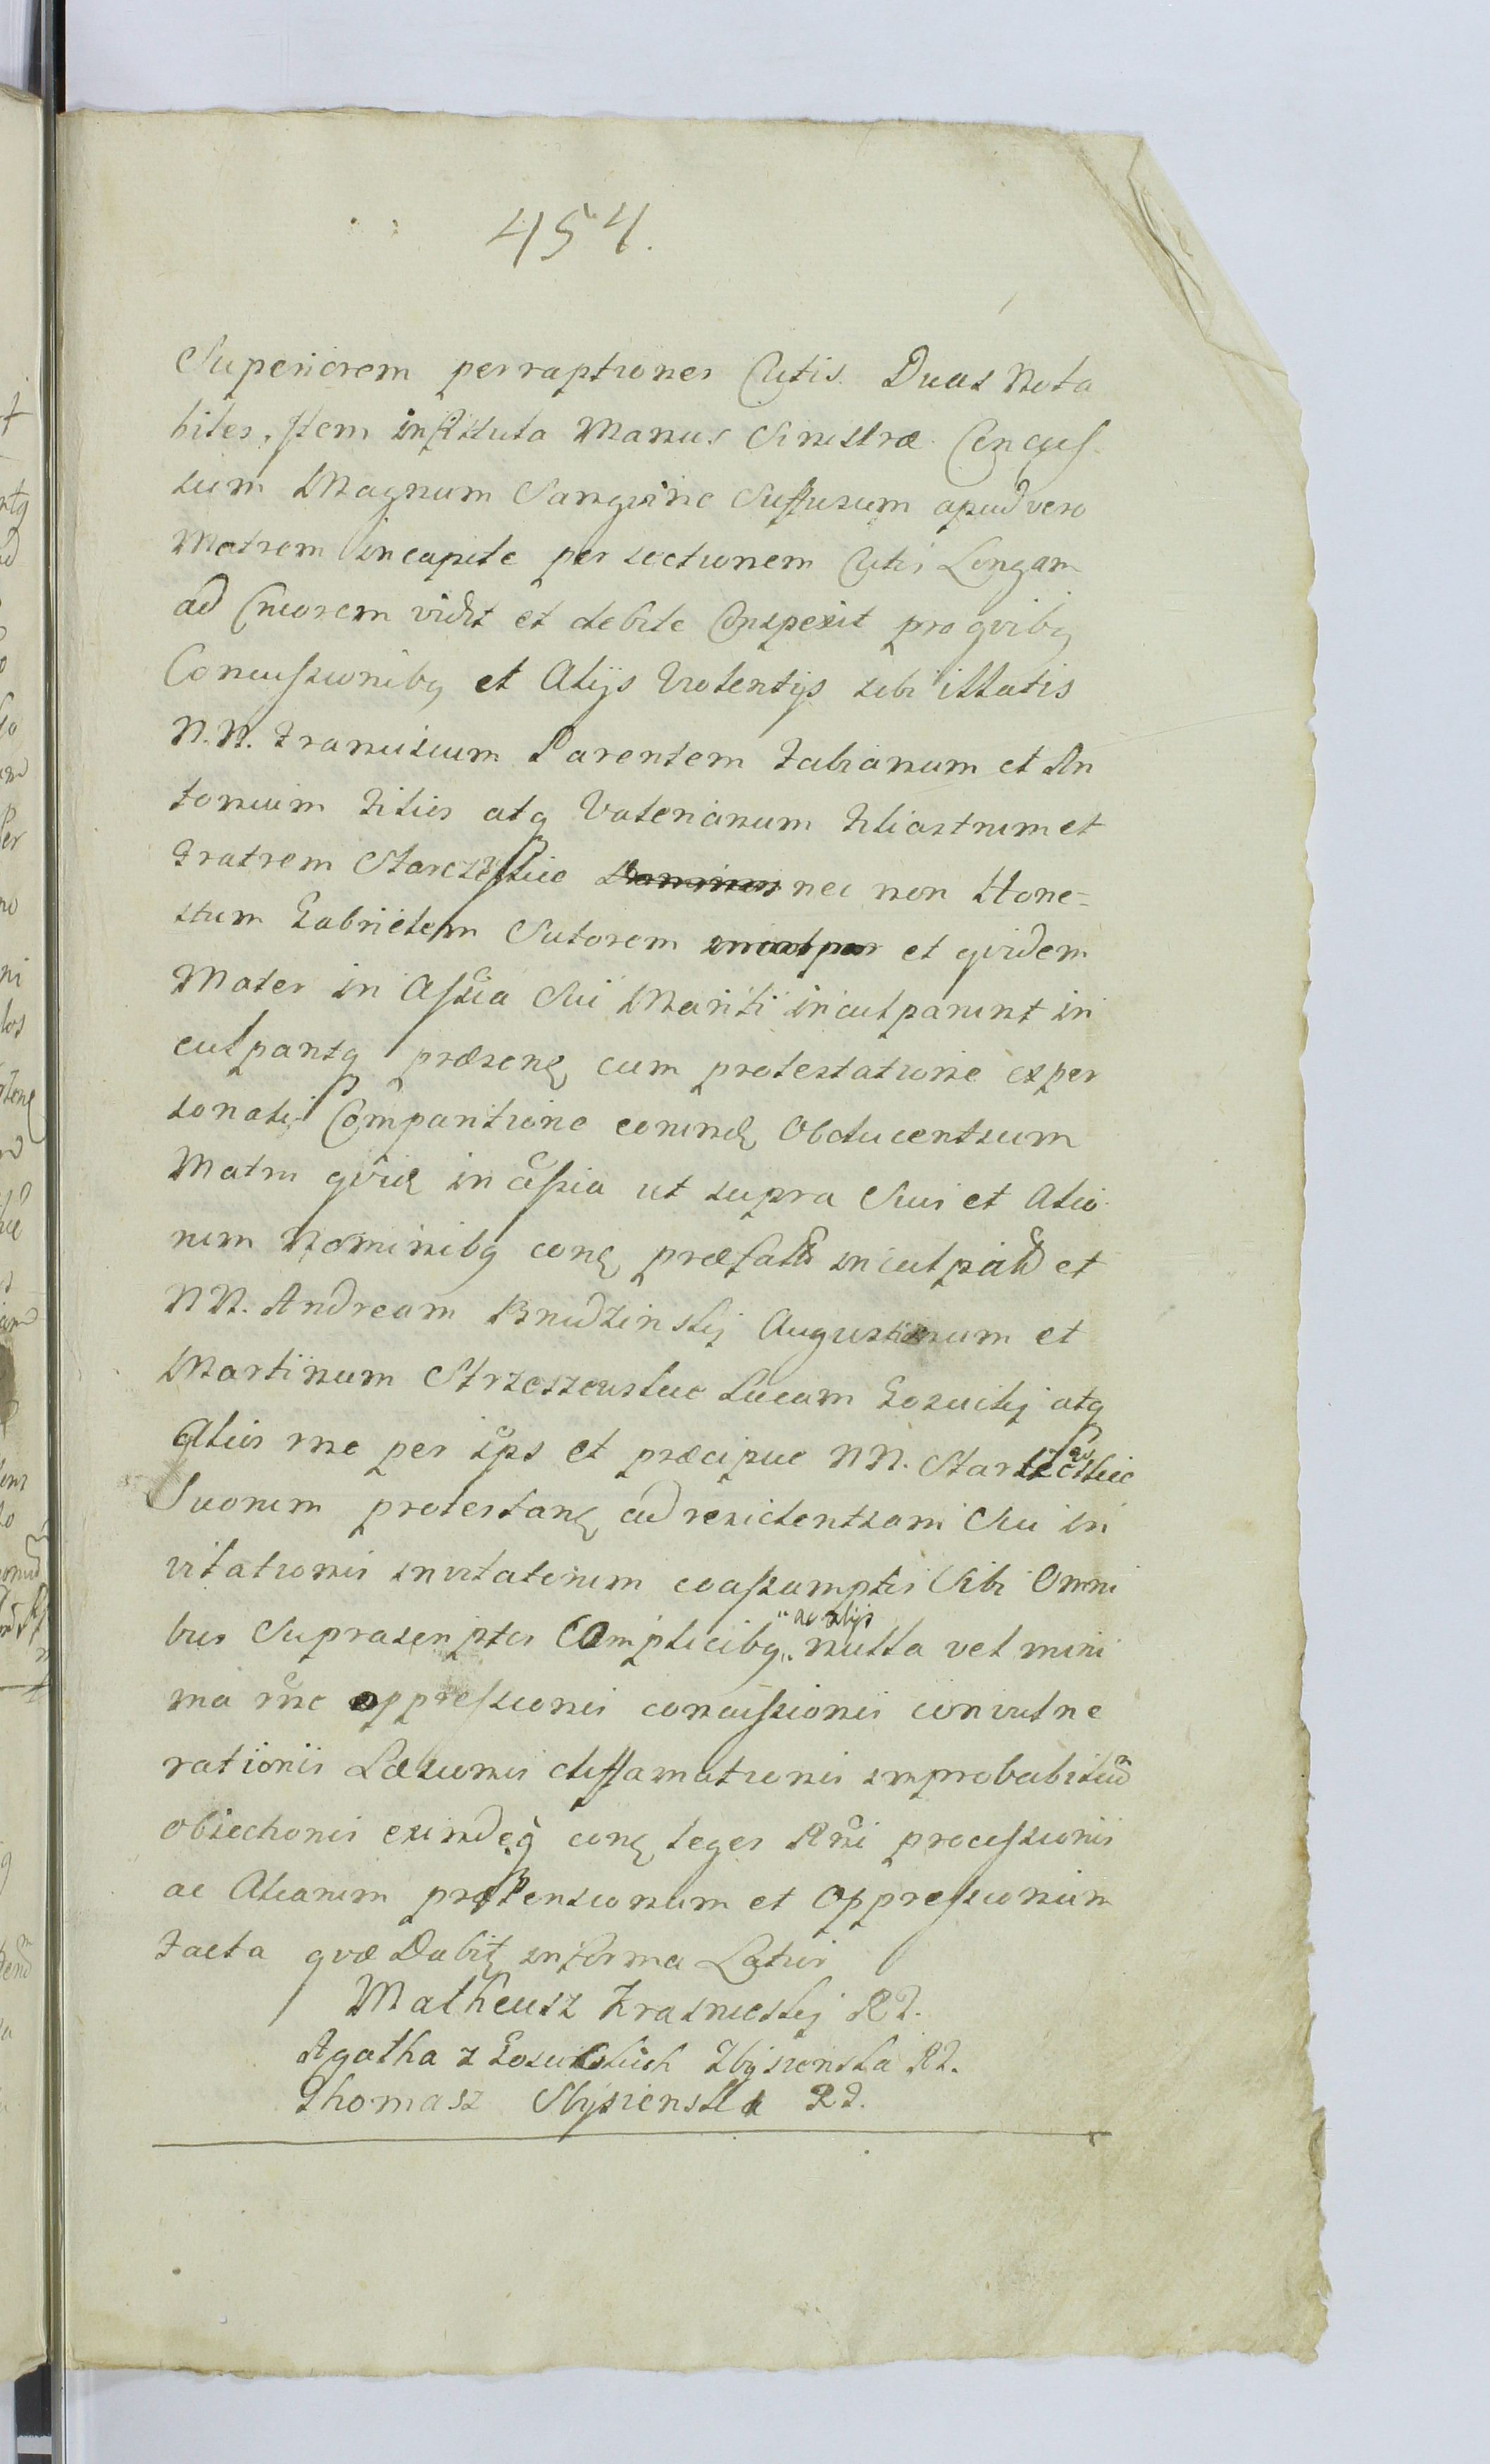 454.
Superiorem perraptiones Cutis. Duas Nota
biles, Item in Scluta Manus Sinistræ Concus
sum Magnum Sangvine Suffusum apud vero
Matrem in capite per sectionem Cutis Longam
ad Cruorem vidit et debite Conspexit pro qvibq
Concussionibq et Alijs Violentijs sibi illatis
N.N. Franciscum Parentem Fabianum et An
tonium Filios atq Valerianum Filiastrum et
Fratrem Starczeskie nec non Hone-
stum Gabrielem Sutorem et qvidem
Mater in Assĩa Sui Mariti inculparunt in
culpantq præsenʒ cum protestatione exper
sonali Comparitione eorundʒ Obducentium
Matris in assia ut supra Sui et Alio
rum Nominibq conʒ præfatos inculpatos et
NN. Andream Brudzinskij Augustinum et
Martinum Strzeszewskie Lucam Gozuckij atq
Alios rne per ips et præcipue NN. Starczeskie
Suorum protestanʒ ad residentiam Sui in
vitationis invitatorum coassumptis Sibi Omni
bus Suprascriptis Complicibq "ac alijs" nulla vel mini
ma rñe oppressionis concussionis convulne
rationis Læsionis diffamationis improbabilium
obiectionis exindeq conʒ leges Rñi processionis
ac Aliarum prætensionum et Oppressionum
Facta qvæ Dabitʒ in forma Latiori
Matheusz Krasnieskij RT.
Agatha z Gozuckich Zbysienska RT.
Thomasz Sbysienski RT.